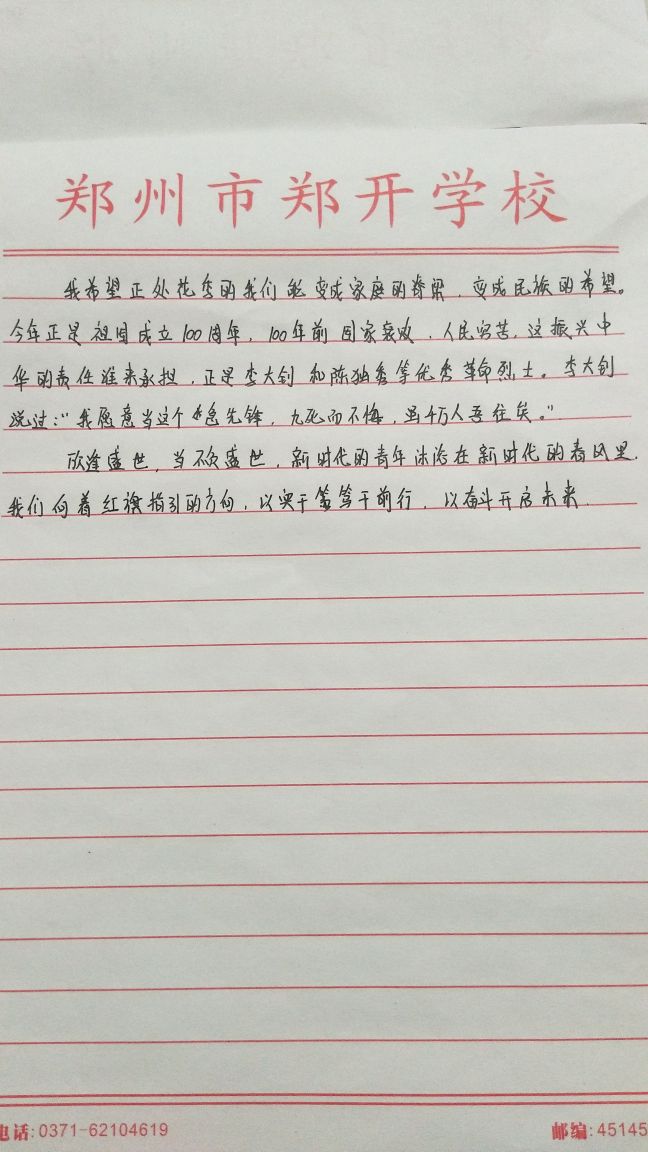 郑州市郑开学校
我希望正处花季的我们能变成家庭的脊梁，变成民族的希望。
今年正是祖国成立100周年，100年前国家衰败，人民穷苦，这振兴中
华的责任谁来承担，正是李大钊和陈独秀等优秀革命烈士。李大钊
说过："我愿意当这个 先锋，九死而不悔，虽千万人吾往矣。"
欣逢盛世，当不负盛世，新时代的青年沐浴在新时代的春风里，
我们向着红旗指引的方向，以实干笃笃于前行，以奋斗开启未来．
电话:0371-62104619
邮编:45145